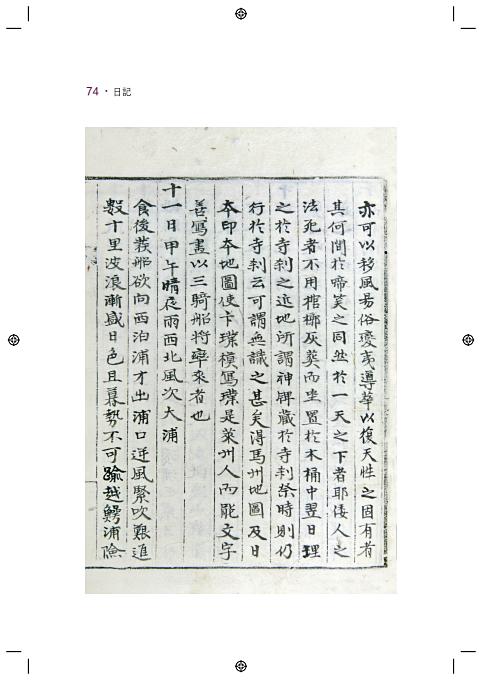 74 · 日記
亦可以移風易俗變夷導華以復天性之固有者
其何間於啼笑之同然於一天之下者耶倭人之
法死者不用棺槨灰葬而坐置於木桶中翌日理
之於寺刹之近地所謂神牌藏於寺刹祭時則仍
行於寺刹云可謂無識之甚矣得馬州地圖及日
本印本地圖使卞璞模寫璞是萊州人而能文字
善寫畫以三騎船將率來者也
十一日甲午晴夜雨西北風次大浦
食後發船欲向西泊浦才出浦口逆風緊吹艱進
數十里波浪漸盛日色且暮勢不可踰越鰐浦險